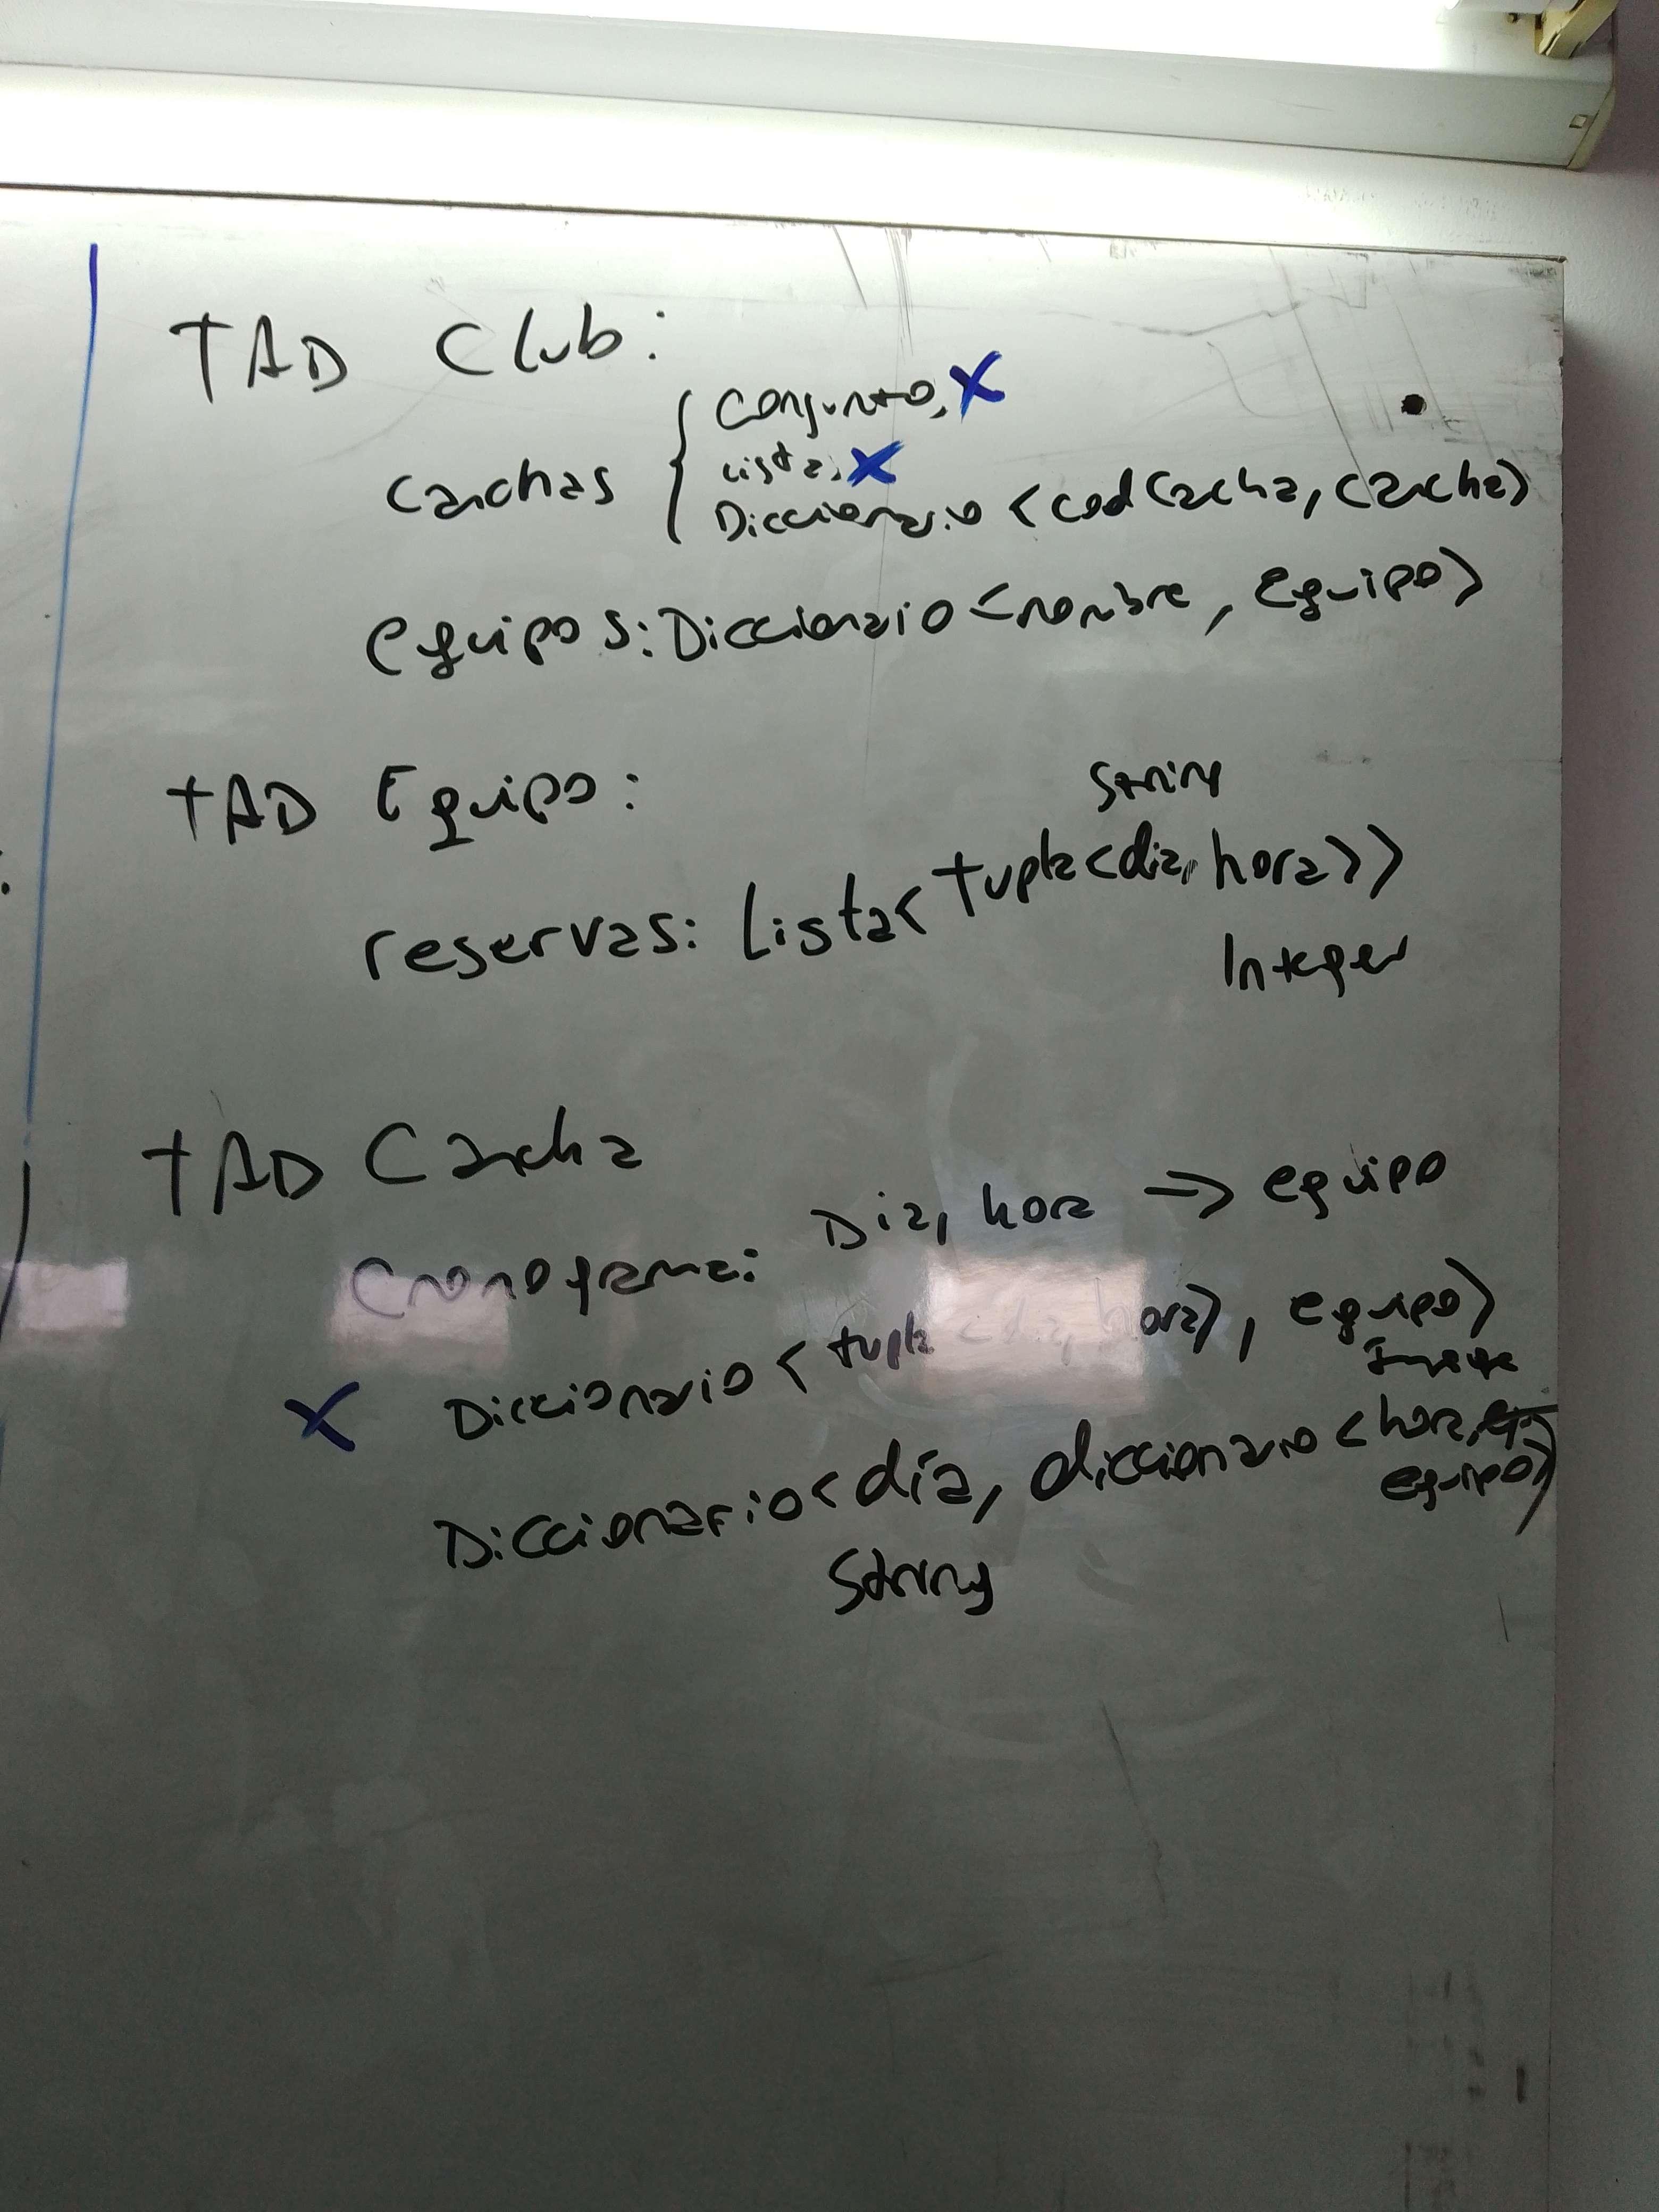 TAD Club:
canchas { Conjunto, X
Lista, X
Diccionario <codCancha, cancha>
equipos: Diccionario <nombre, equipo>
TAD Equipo:
String
reservas: Lista< tupla <dia, hora>>
Integer
TAD Cancha
Dia, hora => equipo
Cronograma:
X Diccionario < tupla <dia, hora>, equipo>
Diccionario< día, diccionario < hora,
equipo>
String